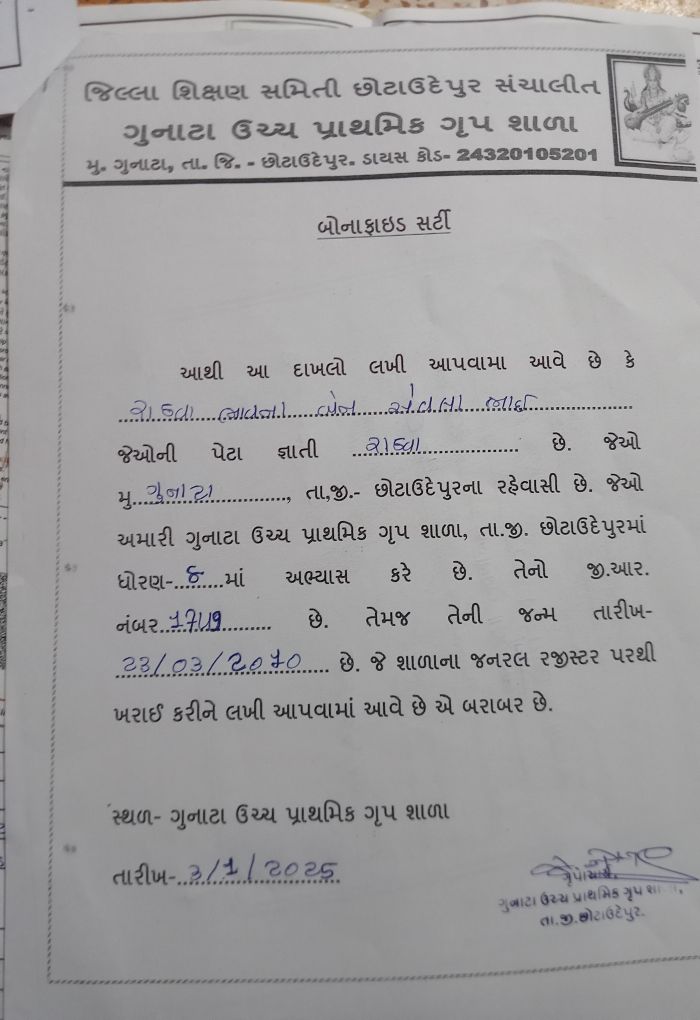 જિલ્લા શિક્ષણ સમિતી છોટાઉદેપુર સંચાલીત
ગુનાટા ઉચ્ચ પ્રાથમિક ગૃપ શાળા
મુ. ગુનાટા, તા. જિ. - છોટાઉદેપુર. ડાયસ કોડ- 24320105201
બોનાફાઇડ સર્ટી
આથી આ દાખલો લખી આપવામા આવે છે કે
રાઠવા ભાવના બેન ભાઈ
જેઓની પેટા જ્ઞાતી રાઠવા છે. જેઓ
મુ. ગુનાટા, તા,જી.- છોટાઉદેપુરના રહેવાસી છે. જેઓ
અમારી ગુનાટા ઉચ્ચ પ્રાથમિક ગૃપ શાળા, તા.જી. છોટાઉદેપુરમાં
ધોરણ- માં અભ્યાસ કરે છે. તેનો જી.આર.
નંબર છે. તેમજ તેની જન્મ તારીખ-
23/03/2010 છે. જે શાળાના જનરલ રજીસ્ટર પરથી
ખરાઈ કરીને લખી આપવામાં આવે છે એ બરાબર છે.
સ્થળ- ગુનાટા ઉચ્ચ પ્રાથમિક ગૃપ શાળા
તારીખ- 3/1/2025
ગુનાટા ઉચ્ચ પ્રાથમિક ગૃપ
તા.જી.છોટાઉદેપુર.